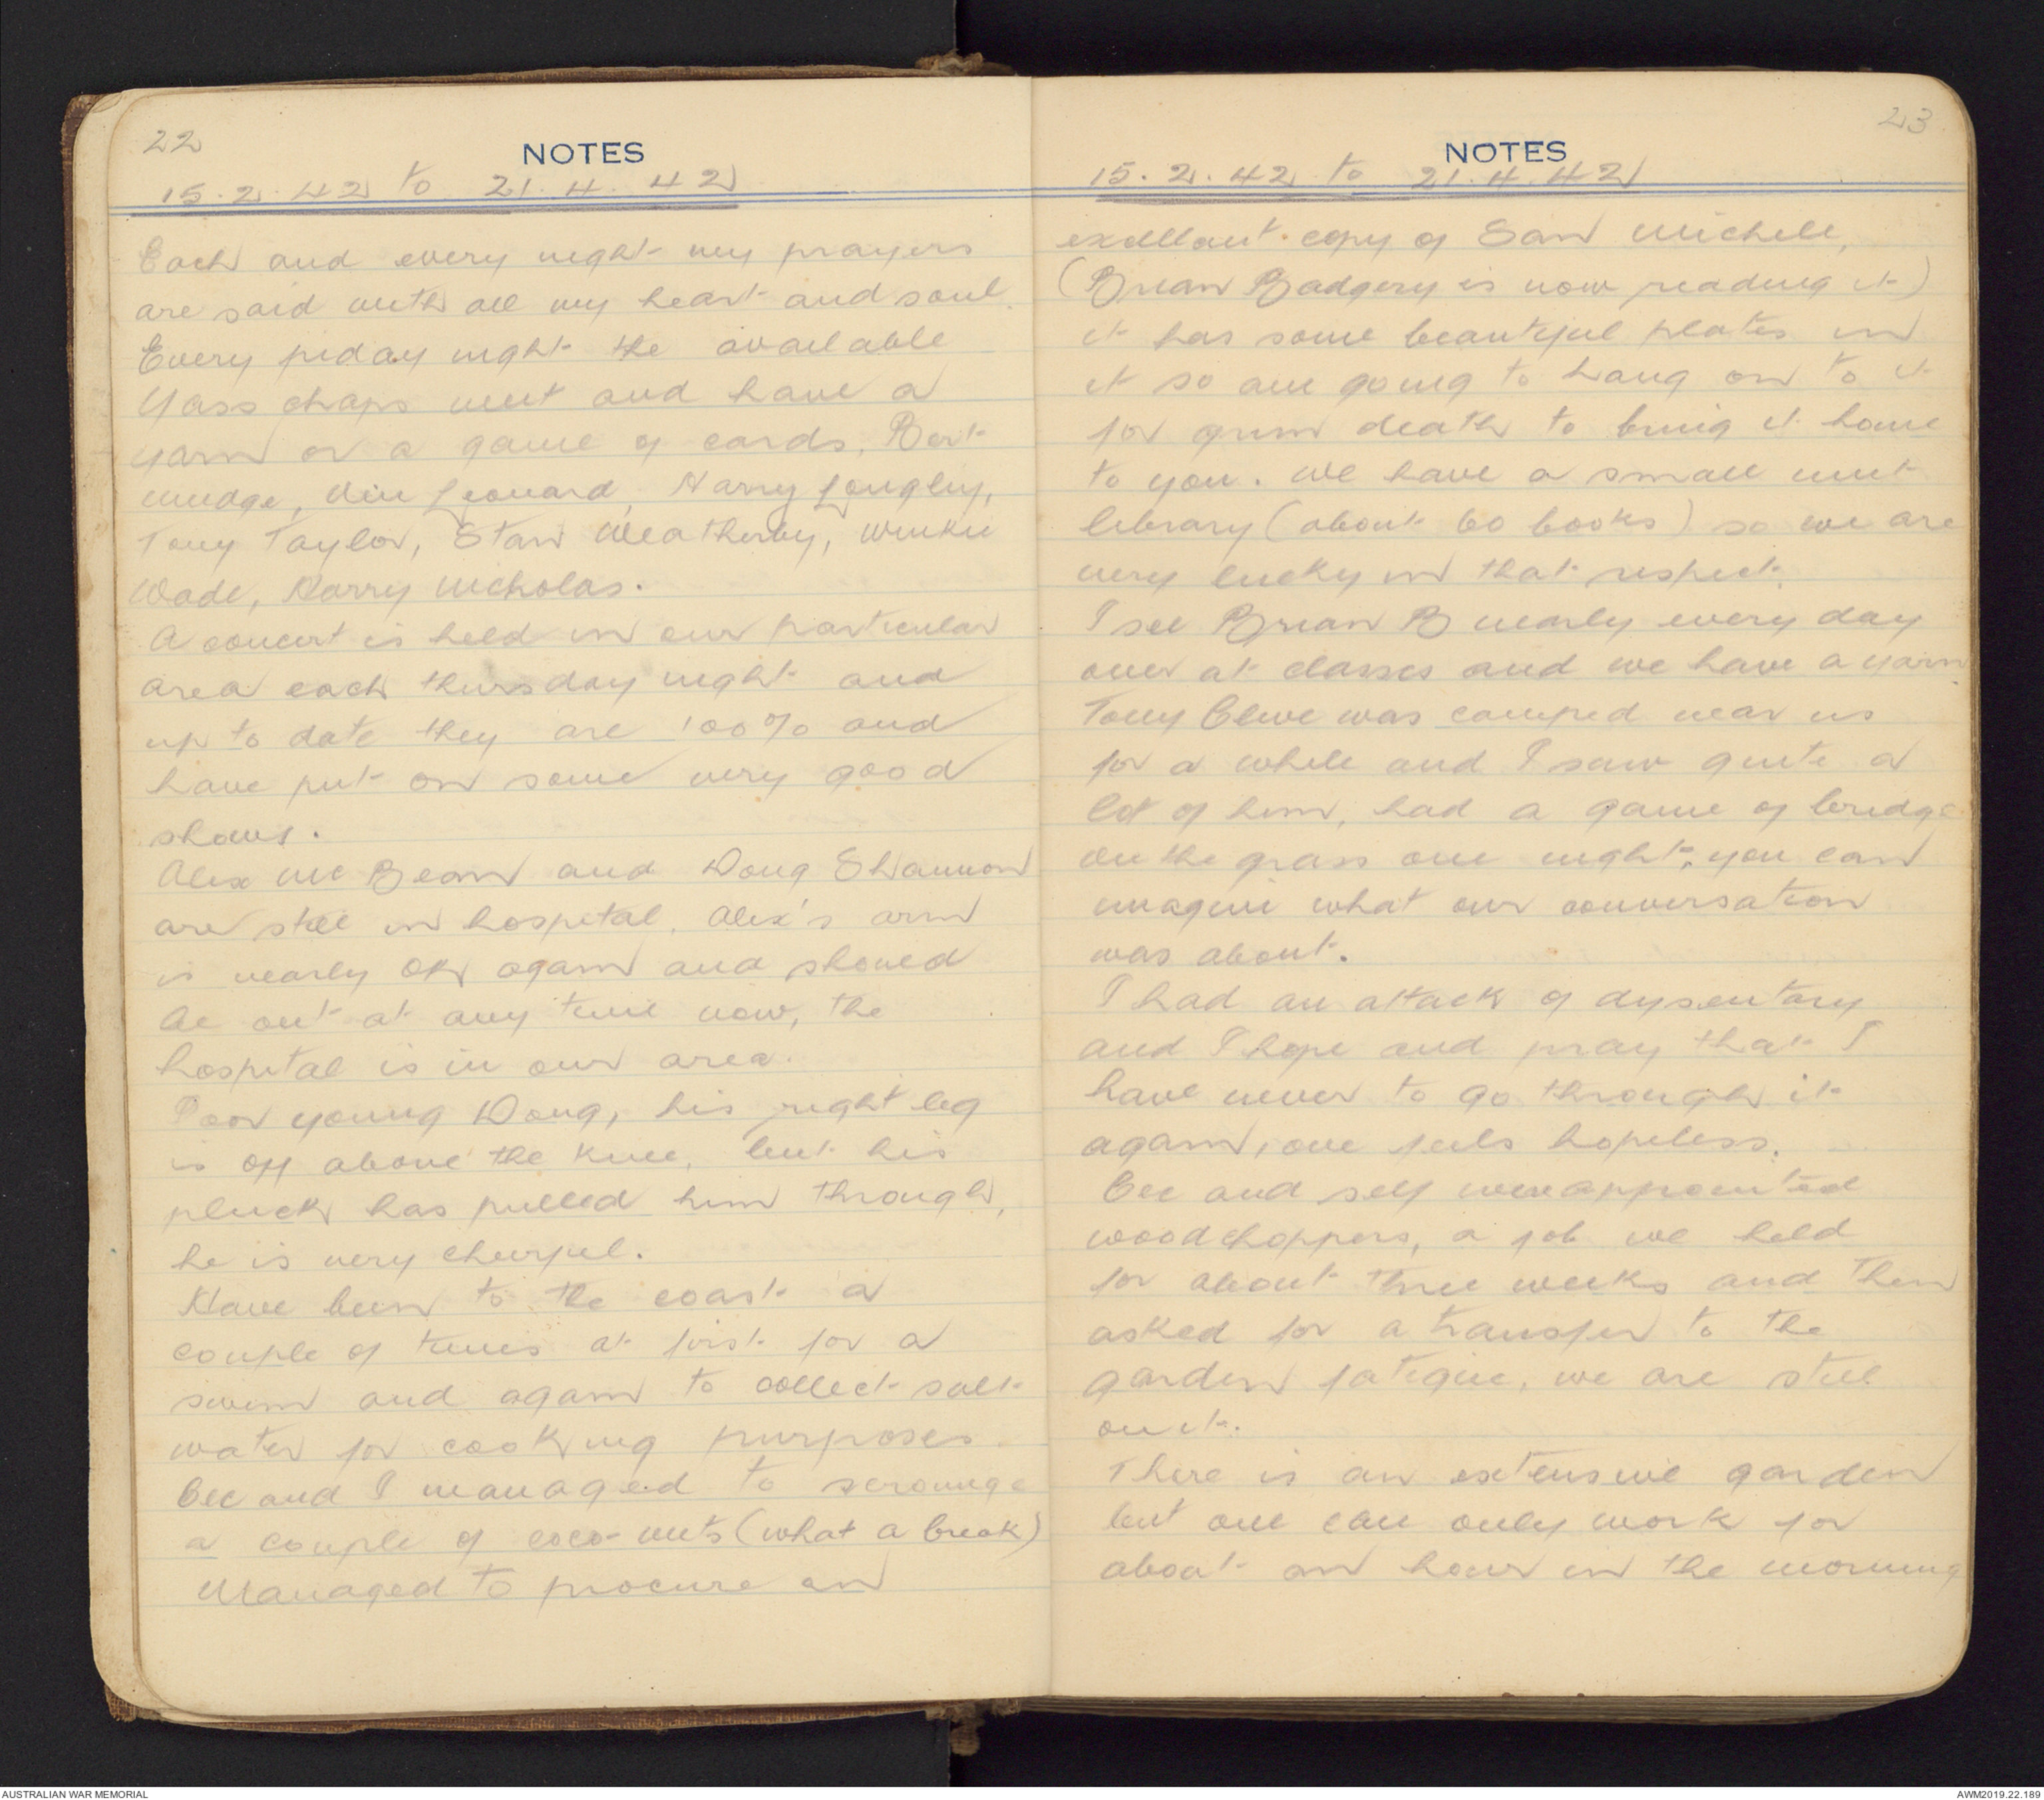 22
NOTES
15.2.42 to 21.4.42
Each and every night my prayers
are said with all my heart and soul.
Every friday night the available
Yass chaps meet and have a
yarn or a game of cards, Bert
Mudge, Leonard, Harry Longley,
Tony Taylor, Stan Weatherby, Winkie
Wade, Harry Nicholas.
A concert is held in our particular
area each thursday night and
up to date they are 100% and
have put on some very good
shows.
Alex McBean and Doug Shannon
are still in hospital. Alex's arm
is nearly OK again and should
be out at any time now, the
hospital is in our area.
Poor young Doug, his right leg
is off above the knee, but his
pluck has pulled him through,
he is very cheerful.
Have been to the coast a
couple of times at first for a
swim and again to collect salt
water for cooking purposes
Cec and I managed to scrounge
a couple of coco-nuts (what a break)
Managed to procure an
23
NOTES
15.2.42 to 21.4.42
excellant copy of San Michele,
(Brian Badgery is now reading it)
it has some beautiful plates in
it so am going to hang on to it
for grim death to bring it home
to you. We have a small unit
library (about 60 books) so we are
very lucky in that respect.
I see Brian B nearly every day
over at classes and we have a yarn.
Tony Clive was camped near us
for a while and I saw quite a
lot of him, had a game of bridge
on the grass one night, you can
imagine what our conversation
was about.
I had an attack of dysentary
and I hope and pray that I
have never to go through it
again, one feels hopeless.
Cec and self were appointed
woodchoppers, a job we held
for about three weeks and then
asked for a transfer to the
garden fatigue, we are still
on it.
There is an extensive garden
but one can only work for
about an hour in the morning
AUSTRALIAN WAR MEMORIAL
AWM2019.22.189